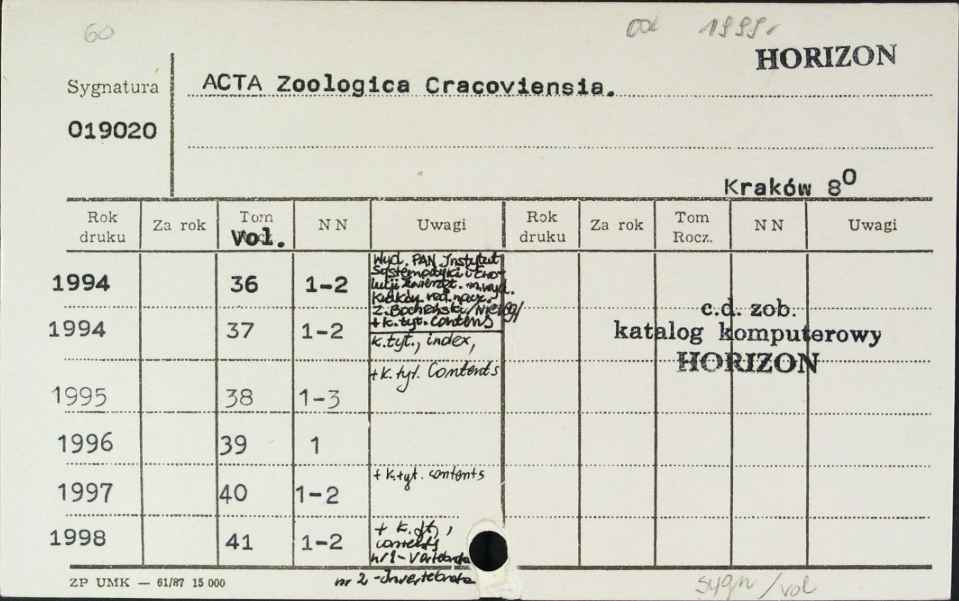 60
od 1999r
HORIZON
Sygnatura
ACTA Zoologica Cracoviensia.
019020
Kraków 8⁰
Rok druku Za rok Tom Vol. NN Uwagi Rok druku Za rok Tom Rocz. NN Uwagi
1994 36 1-2
Wyd. PAN Instytut
Systematyki i Ewo
lucji Zwierząt. m.wyd.
Kraków red. nacz.
Z. Bocheński
+ k. tyt. contens
1994 37 1-2 k. tyt., index,
+ k. tyt. Contents
1995 38 1-3
1996 39 1
1997 40 1-2 + k. tyt. contents
1998 41 1-2
+ k. tyt.,
contents
nr 1-Vertebrata
nr 2-Invertebrata
c.d. zob.
katalog komputerowy
HORIZON
ZP UMK — 61/87 15 000
sygn/vol